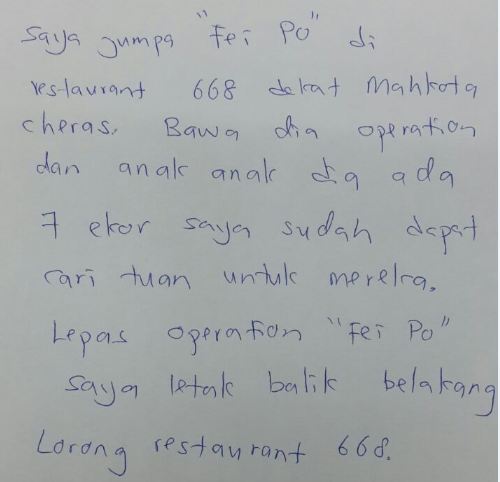 Saya jumpa "Fei Po" di
restaurant 668 dekat Mahkota
cheras. Bawa dia operation
dan anak anak dia ada
7 ekor saya sudah dapat
cari tuan untuk mereka.
Lepas operation "Fei Po"
saya letak balik belakang
Lorong restaurant 668.